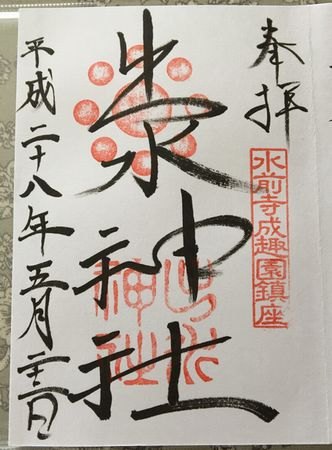 奉拝
水前寺成趣園鎮座
出水神社
出水神社
平成二十八年五月二十二日